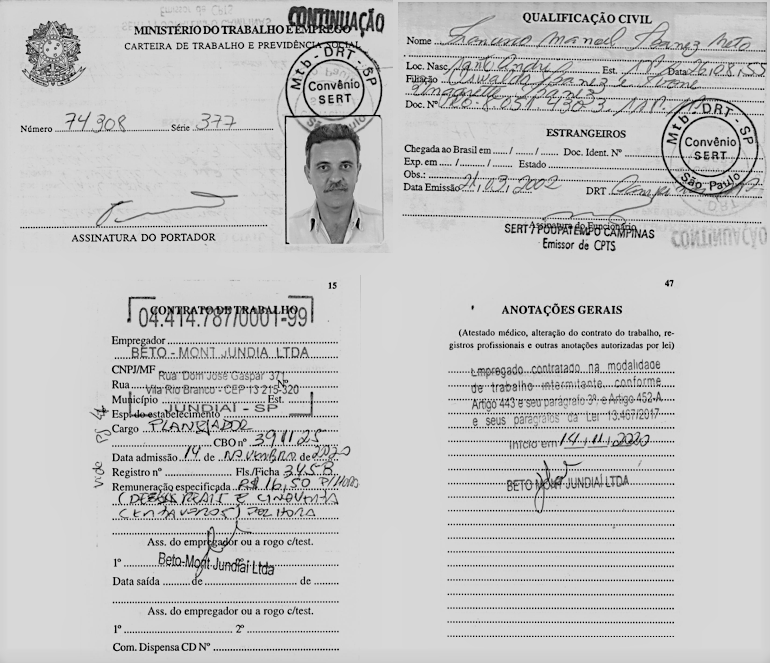 CONTINUAÇÃO
MINISTÉRIO DO TRABALHO E EMPREGO
CARTEIRA DE TRABALHO E PREVIDÊNCIA SOCIAL
Mtb - DRT - SP
Convênio
SERT
São Paulo
Número 74308 Série 377
ASSINATURA DO PORTADOR
QUALIFICAÇÃO CIVIL
Nome Francisco Manoel Ibanez Neto
Loc. Nasc. Santo André Est. SP Data 26,08,55
Filiação Oswaldo Ibanez e Ivone
Ibanez
Doc. Nº
ESTRANGEIROS
Chegada ao Brasil em ...... / ...... / ...... Doc. Ident. Nº
Exp. em ...... / ...... / ...... Estado
Obs.:
Data Emissão 21,03,2002 DRT
Mtb - DRT - SP
Convênio
SERT
São Paulo
Assinatura do Funcionário
SERT / POUPATEMPO CAMPINAS
Emissor de CPTS
CONTINUAÇÃO
15
CONTRATO DE TRABALHO
04.414.787/0001-99
Empregador
BETO - MONT JUNDIA LTDA
CNPJ/MF
Rua Dom José Gaspar 371
Rua Nº
Vila Rio Branco - CEP 13 215-320
Município Est.
JUNDIAÍ - SP
Esp. do estabelecimento
Cargo PLANEJADOR
CBO nº 391125
Data admissão 14 de NOVEMBRO de 2020
Registro nº Fls./Ficha 3458
Remuneração especificada R$ 16,50 P/HORA
(DEZESSEIS REAIS E CINQUENTA
CENTAVOS) POR HORA
Ass. do empregador ou a rogo c/test.
1º Beto-Mont Jundiaí Ltda
Data saída de de
Ass. do empregador ou a rogo c/test.
1º 2º
Com. Dispensa CD Nº
47
ANOTAÇÕES GERAIS
(Atestado médico, alteração do contrato do trabalho, re-
gistros profissionais e outras anotações autorizadas por lei)
Empregado contratado na modalidade
de trabalho intermitente conforme
Artigo 443 e seu parágrafo 3º e Artigo 452-A
e seus parágrafos da Lei 13.467/2017
Início em 14/11/2020
BETO MONT JUNDIAÍ LTDA